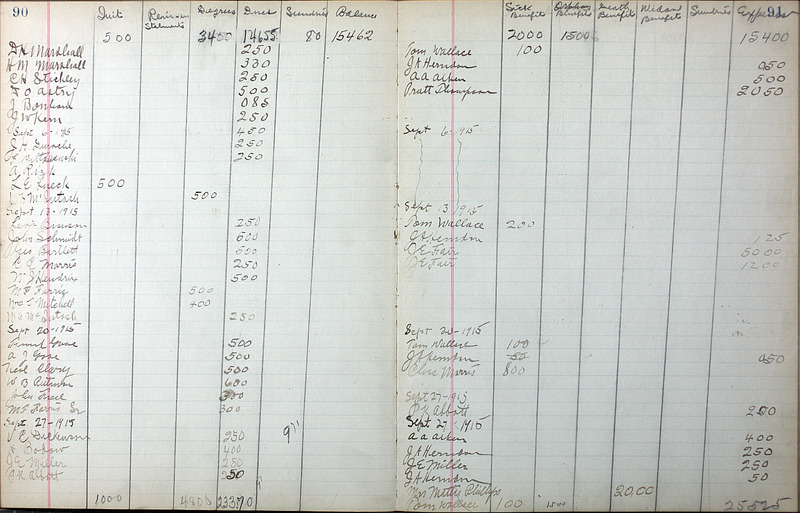 90
Init Degrees Dues Sundries Balance
500 3400 14655 80 15462
D H Marshall 250
H M Marshall 330
C H Stickley 250
500
J Bonham 085
J W Kem 250
Sept 6-1915 450
250
250
L E Lueck 500
J F McIntosh 500
Sept 13-1915
250
John Schmidt 600
Bartlett 500
C E Morris 250
W S Hendrix 500
M F Farris 500
Mitchell 400
McIntosh 250
Sept 20-1915
500
A J Goss 500
500
W B 600
John 300
M F Farris Sr 300
Sept 27-1915
J E Dickinson 250
400
J E Miller 250
P K Abbott 250
1000 4800 23370
91
Sick Benefit Orphan Benefits Death Benefit Widow Benefits Sundries Expenses
2000 1500 15400
Tom Wallace 100
J A Herndon 050
A A Aiken 500
Pratt Thompson 2050
Sept 6-1915
Sept 13 1915
Tom Wallace 200
J A Herndon 125
J E Fair 5000
J E Fair 1200
Sept 20-1915
Tom Wallace 100
J A Herndon 50 050
Morris 800
Sept 27-1915
P K Abbott 200
Sept 27-1915
A A Aiken 400
J A Herndon 250
J E Miller 250
J A Herndon 50
Mrs Mettie Phillips 20.00
Tom Wallace 100 1500 25525